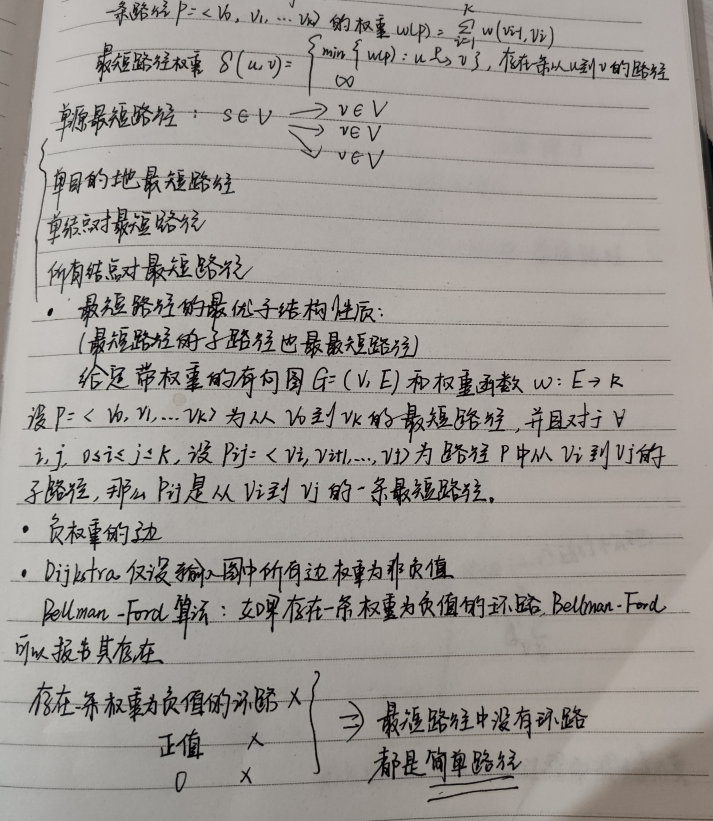 一条路径 P=<v₀, v₁, ... vₖ> 的权重 w(p) = ∑ᵢ₌₁ᴷ w(vᵢ₋₁, vᵢ)
最短路径权重 δ(u,v) = { min{w(p): u ⇝ v}, 存在一条从u到v的路径
∞
单源最短路径: s∈V → v∈V
→ v∈V
→ v∈V
单目的地最短路径
单结点对最短路径
所有结点对最短路径
• 最短路径的最优子结构性质:
(最短路径的子路径也最最短路径)
给定带权重的有向图 G=(V,E) 和权重函数 w: E→R
设 P=<v₀, v₁, ... vₖ> 为从 v₀ 到 vₖ 的最短路径, 并且对于 ∀
i, j, 0≤i≤j≤k, 设 Pij=<vᵢ, vᵢ₊₁, ..., vⱼ> 为路径 P 中从 vᵢ 到 vⱼ 的
子路径, 那么 Pij 是从 vᵢ 到 vⱼ 的一条最短路径。
• 负权重的边
• Dijkstra 仅设输入图中所有边权重为非负值
Bellman-Ford 算法: 如果存在一条权重为负值的环路, Bellman-Ford
可以报告其存在
存在一条权重为负值的环路 ×
正值 ×
0 ×
} ⇒ 最短路径中没有环路
都是简单路径